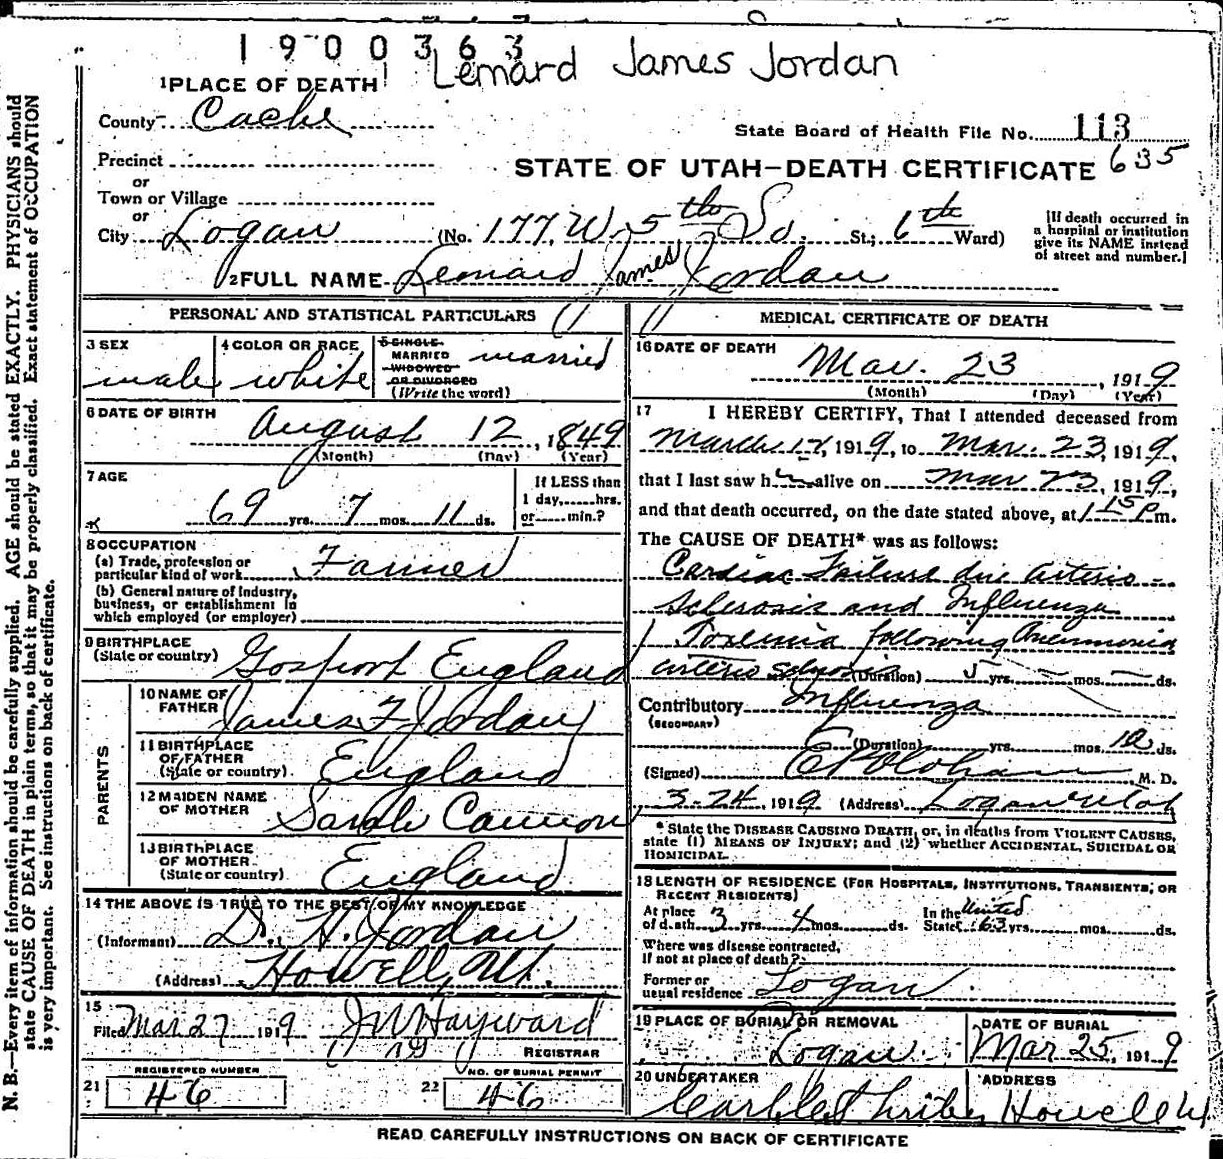 1900363
Lemard James Jordan
1 PLACE OF DEATH
County Cache
State Board of Health File No. 113
Precinct
635
STATE OF UTAH—DEATH CERTIFICATE
or
Town or Village
or
City Logan (No. 177 W. 5th So. St.; 6th Ward)
[If death occurred in
a hospital or institution
give its NAME instead
of street and number.]
2 FULL NAME Lemard James Jordan
PERSONAL AND STATISTICAL PARTICULARS
3 SEX
male
4 COLOR OR RACE
white
5 SINGLE
MARRIED
WIDOWED
OR DIVORCED
(Write the word)
married
6 DATE OF BIRTH
August 12, 1849
(Month) (Day) (Year)
7 AGE
69 yrs. 7 mos. 11 ds.
If LESS than
1 day, hrs.
or min.?
8 OCCUPATION
(a) Trade, profession or
particular kind of work Farmer
(b) General nature of industry,
business, or establishment in
which employed (or employer)
9 BIRTHPLACE
(State or country) Gosport England
PARENTS
10 NAME OF
FATHER James F Jordan
11 BIRTHPLACE
OF FATHER
(State or country) England
12 MAIDEN NAME
OF MOTHER Sarah Cannon
13 BIRTHPLACE
OF MOTHER
(State or country) England
14 THE ABOVE IS TRUE TO THE BEST OF MY KNOWLEDGE
(Informant) D. H. Jordan
(Address) Howell, Ut.
15
Filed Mar 27 1919 J W Hayward
REGISTRAR
REGISTERED NUMBER
21 46
NO. OF BURIAL PERMIT
22 46
MEDICAL CERTIFICATE OF DEATH
16 DATE OF DEATH
Mar. 23, 1919
(Month) (Day) (Year)
17 I HEREBY CERTIFY, That I attended deceased from
March 17, 1919, to Mar. 23, 1919,
that I last saw h alive on Mar 23, 1919,
and that death occurred, on the date stated above, at 1 15 P.m.
The CAUSE OF DEATH* was as follows:
Cardiac Failure due arterio
sclerosis and Influenza
Toxemia following Pneumonia
arterio sclerosis (Duration) 5 yrs. mos. ds.
Contributory Influenza
(SECONDARY)
(Duration) yrs. mos. 10 ds.
(Signed) M. D.
3-24, 1919 (Address) Logan Utah
* State the DISEASE CAUSING DEATH, or, in deaths from VIOLENT CAUSES,
state (1) MEANS OF INJURY; and (2) whether ACCIDENTAL, SUICIDAL OR
HOMICIDAL.
18 LENGTH OF RESIDENCE (FOR HOSPITALS, INSTITUTIONS, TRANSIENTS, OR
RECENT RESIDENTS)
At place
of death 3 yrs. 4 mos. ds.
In the United
State 63 yrs. mos. ds.
Where was disease contracted,
If not at place of death?
Former or
usual residence Logan
19 PLACE OF BURIAL OR REMOVAL
Logan
DATE OF BURIAL
Mar 25, 1919
20 UNDERTAKER
ADDRESS
Howell Ut
READ CAREFULLY INSTRUCTIONS ON BACK OF CERTIFICATE
N. B.—Every item of information should be carefully supplied. AGE should be stated EXACTLY. PHYSICIANS should
state CAUSE OF DEATH in plain terms, so that it may be properly classified. Exact statement of OCCUPATION
is very important. See instructions on back of certificate.